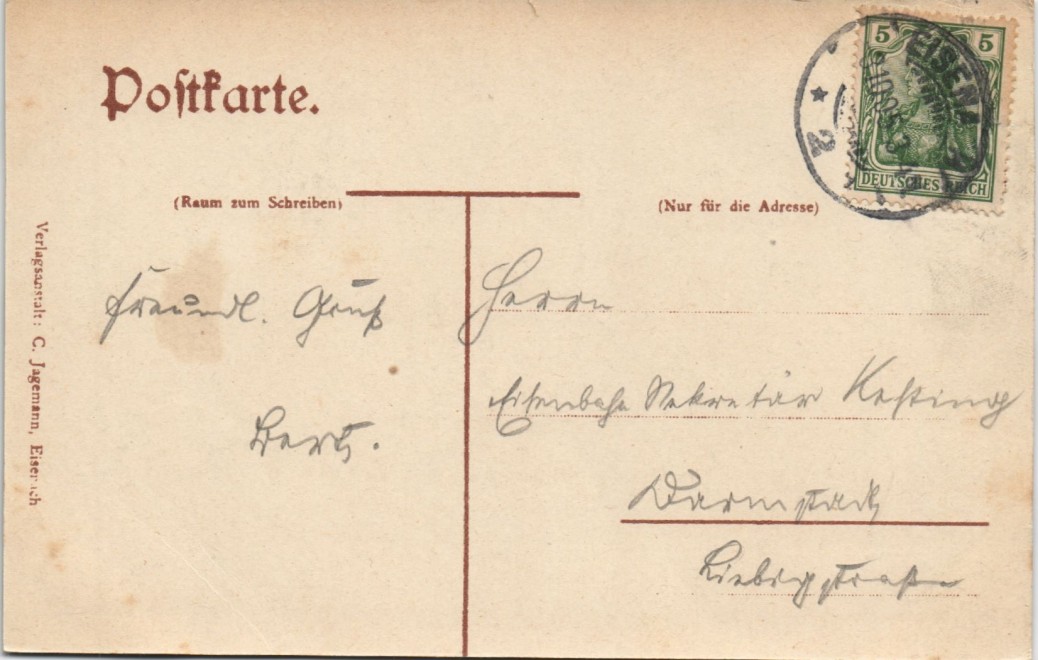 Postkarte.
(Raum zum Schreiben)
(Nur für die Adresse)
5 5
DEUTSCHES REICH
EISENA
2
Verlagsanstalt: C. Jagemann, Eisenach
Freundl. Gruß
Herrn
Eisenbahn Sekretär Kesting
Darmstadt
Liebigstraße